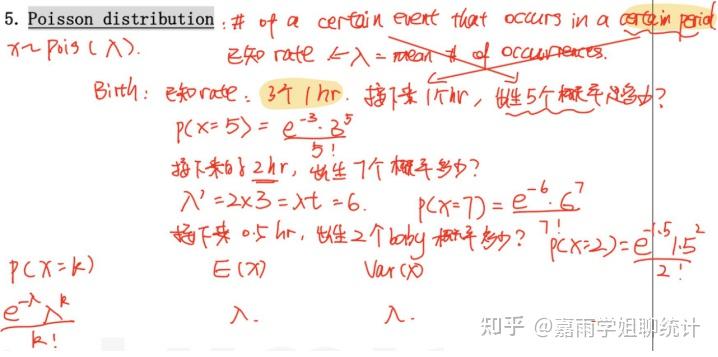 5. Poisson distribution : # of a certain event that occurs in a certain period
x~ Pois (λ).
已知 rate ← λ = mean # of occurrences.
Birth: 已知 rate: 3个 1 hr. 接下来 1个 hr, 出生 5个 概率是多少?
P(x=5) = e^-3 · 3^5 / 5!
接下来的 2 hr, 出生 7个 概率多少?
λ' = 2x3 = λt = 6. P(x=7) = e^-6 · 6^7 / 7!
接下来 0.5 hr, 出生 2个 baby 概率多少? P(x=2) = e^-1.5 1.5^2 / 2!
P(x=k) E(x) Var(x)
e^-λ λ^k / k! λ. λ.
知乎 @嘉雨学姐聊统计